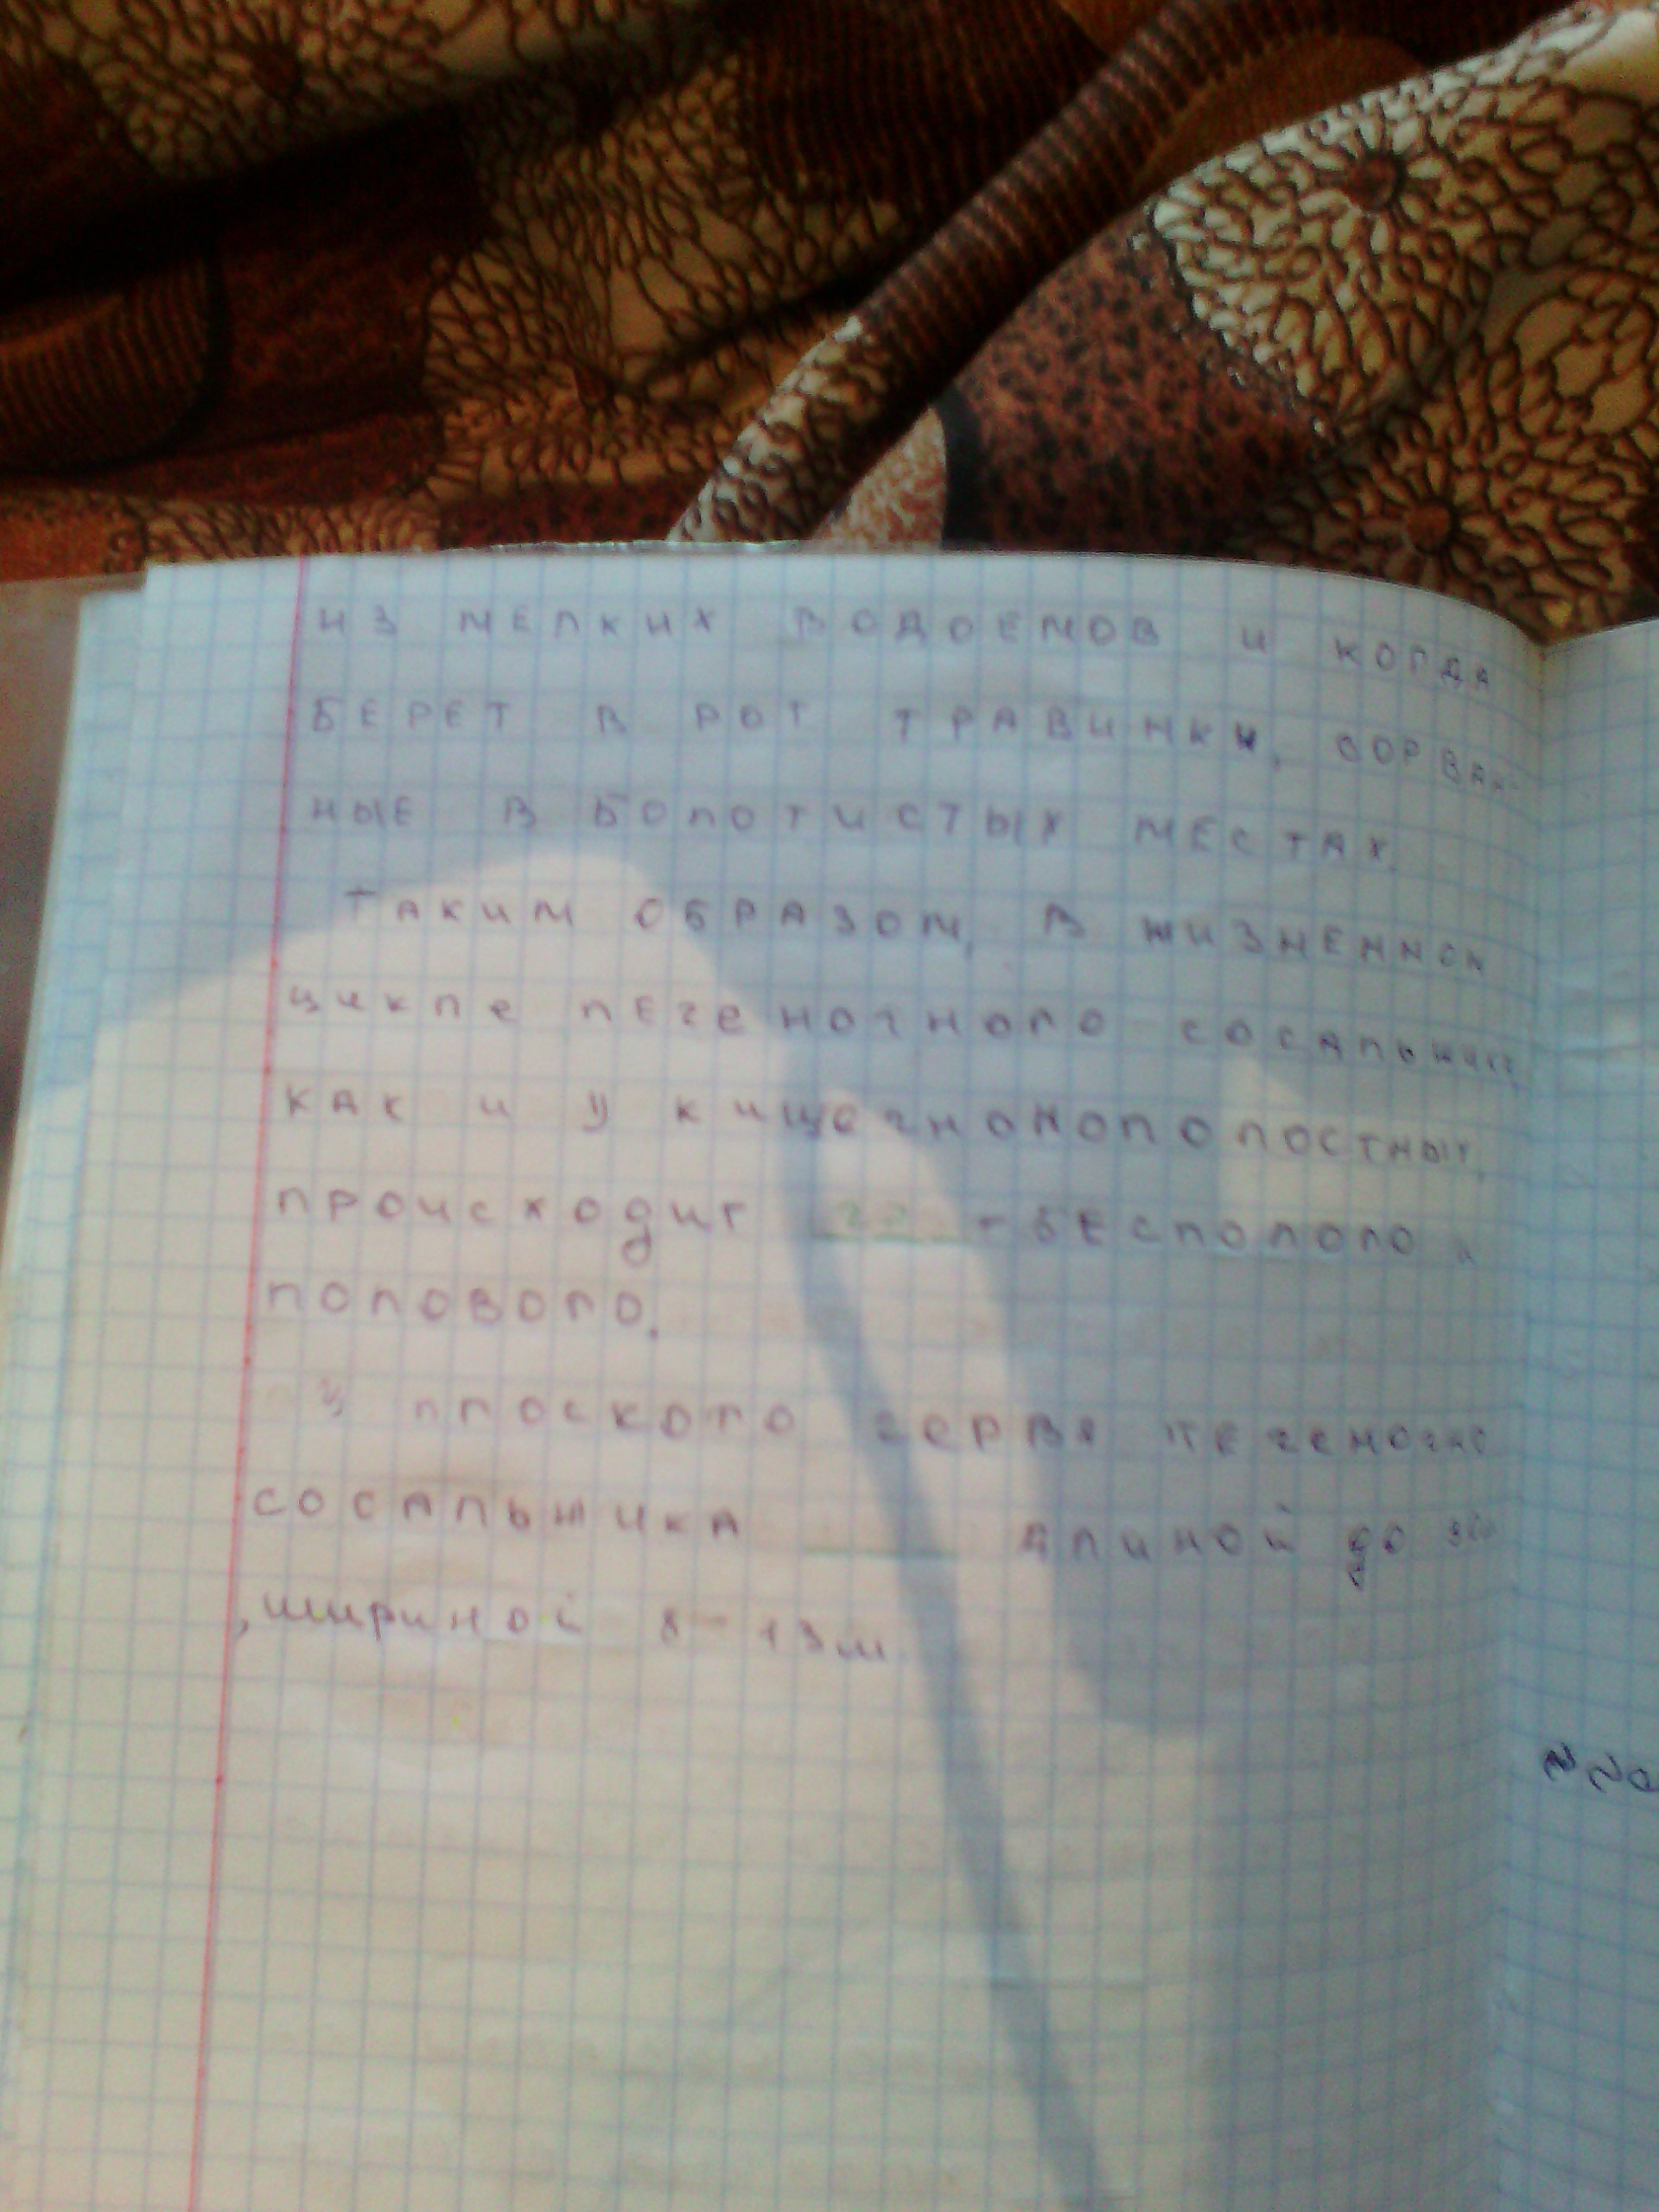 ИЗ МЕЛКИХ ВОДОЕМОВ И КОГДА
БЕРЕТ В РОТ ТРАВИНКИ, СОРВАН-
НЫЕ В БОЛОТИСТЫХ МЕСТАХ.
ТАКИМ ОБРАЗОМ, В ЖИЗНЕННОМ
ЦИКЛЕ ПЕЧЕНОЧНОГО
КАК И У
ПРОИСХОДИТ - БЕСПОЛОГО И
ПОЛОВОГО.
У ПЛОСКОГО ЧЕРВЯ
СОСАЛЬЩИКА ДЛИНОЙ ДО
, ШИРИНОЙ 8-13М.